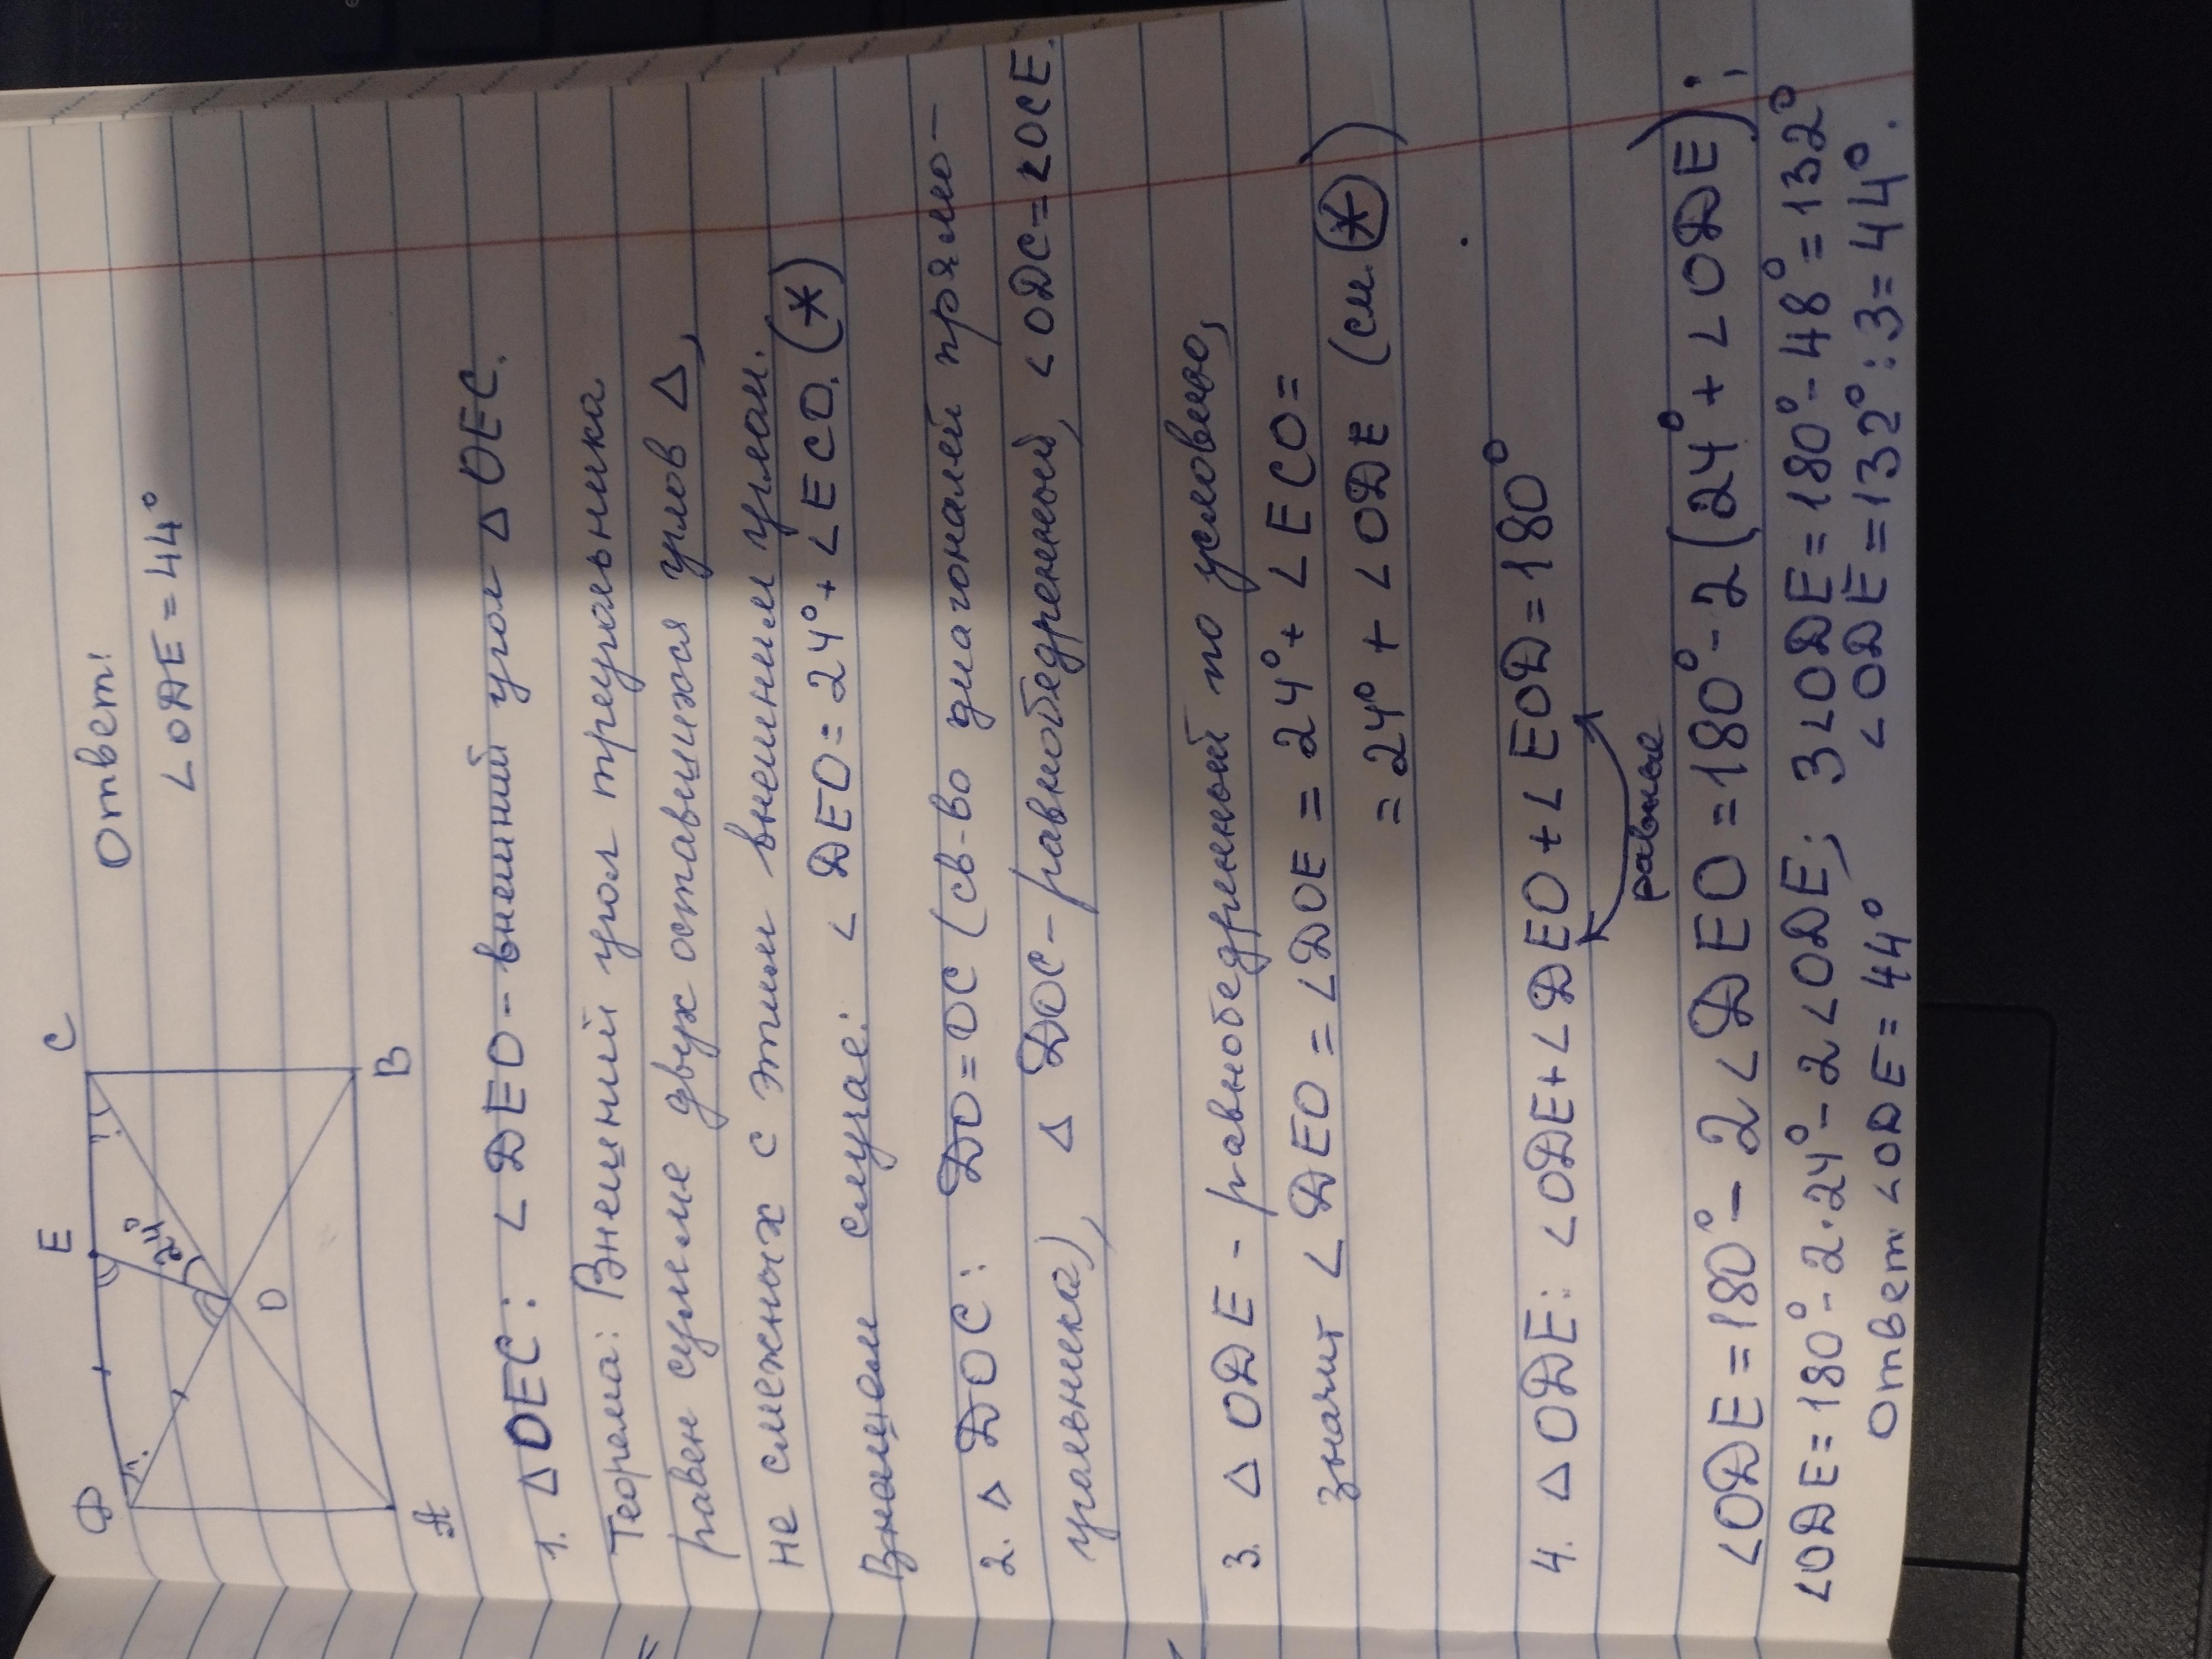 Ответ:
∠ODE = 44°
D E C
24°
O
A B
1. △OEC: ∠DEO - внешний угол △OEC.
Теорема: Внешний угол треугольника
равен сумме двух оставшихся углов △,
не смежных с этим внешним углом.
В нашем случае: ∠DEO = 24° + ∠ECO. (*)
2. △DOC: DO = OC (св-во диагоналей прямо-
угольника), △DOC - равнобедренный, ∠ODC = ∠OCE.
3. △ODE - равнобедренный по условию,
значит ∠DEO = ∠DOE = 24° + ∠ECO =
= 24° + ∠ODE (см. (*))
4. △ODE: ∠ODE + ∠DEO + ∠EOD = 180°
равные
∠ODE = 180° - 2∠DEO = 180° - 2(24° + ∠ODE);
∠ODE = 180° - 2·24° - 2∠ODE; 3∠ODE = 180° - 48° = 132°
∠ODE = 132° : 3 = 44°.
Ответ: ∠ODE = 44°